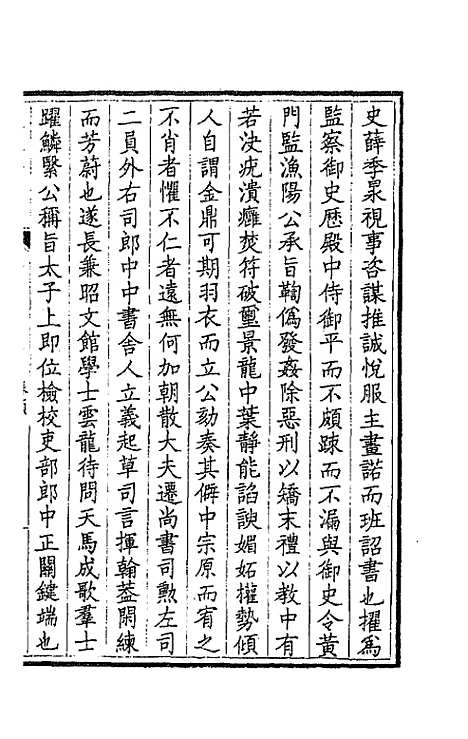 史薛季㫤視事咨謀推誠悅服主畫諾而班詔書也擢爲
監察御史歷殿中侍御平而不頗踈而不漏與御史令黃
門監漁陽公承旨鞫僞發姦除惡刑以矯末禮以教中有
若決疣潰癰焚符破璽景龍中葉靜能諂諛媚妬權勢傾
人自謂金鼎可期羽衣而立公劾奏其僻中宗原而宥之
不肖者懼不仁者遠無何加朝散大夫遷尚書司勲左司
二員外右司郎中中書舍人立義起草司言揮翰葢閑練
而芳蔚也遂長兼昭文館學士雲龍待問天馬成歌羣士
躍鱗緊公稱旨太子上即位檢校吏部郎中正關鍵端也